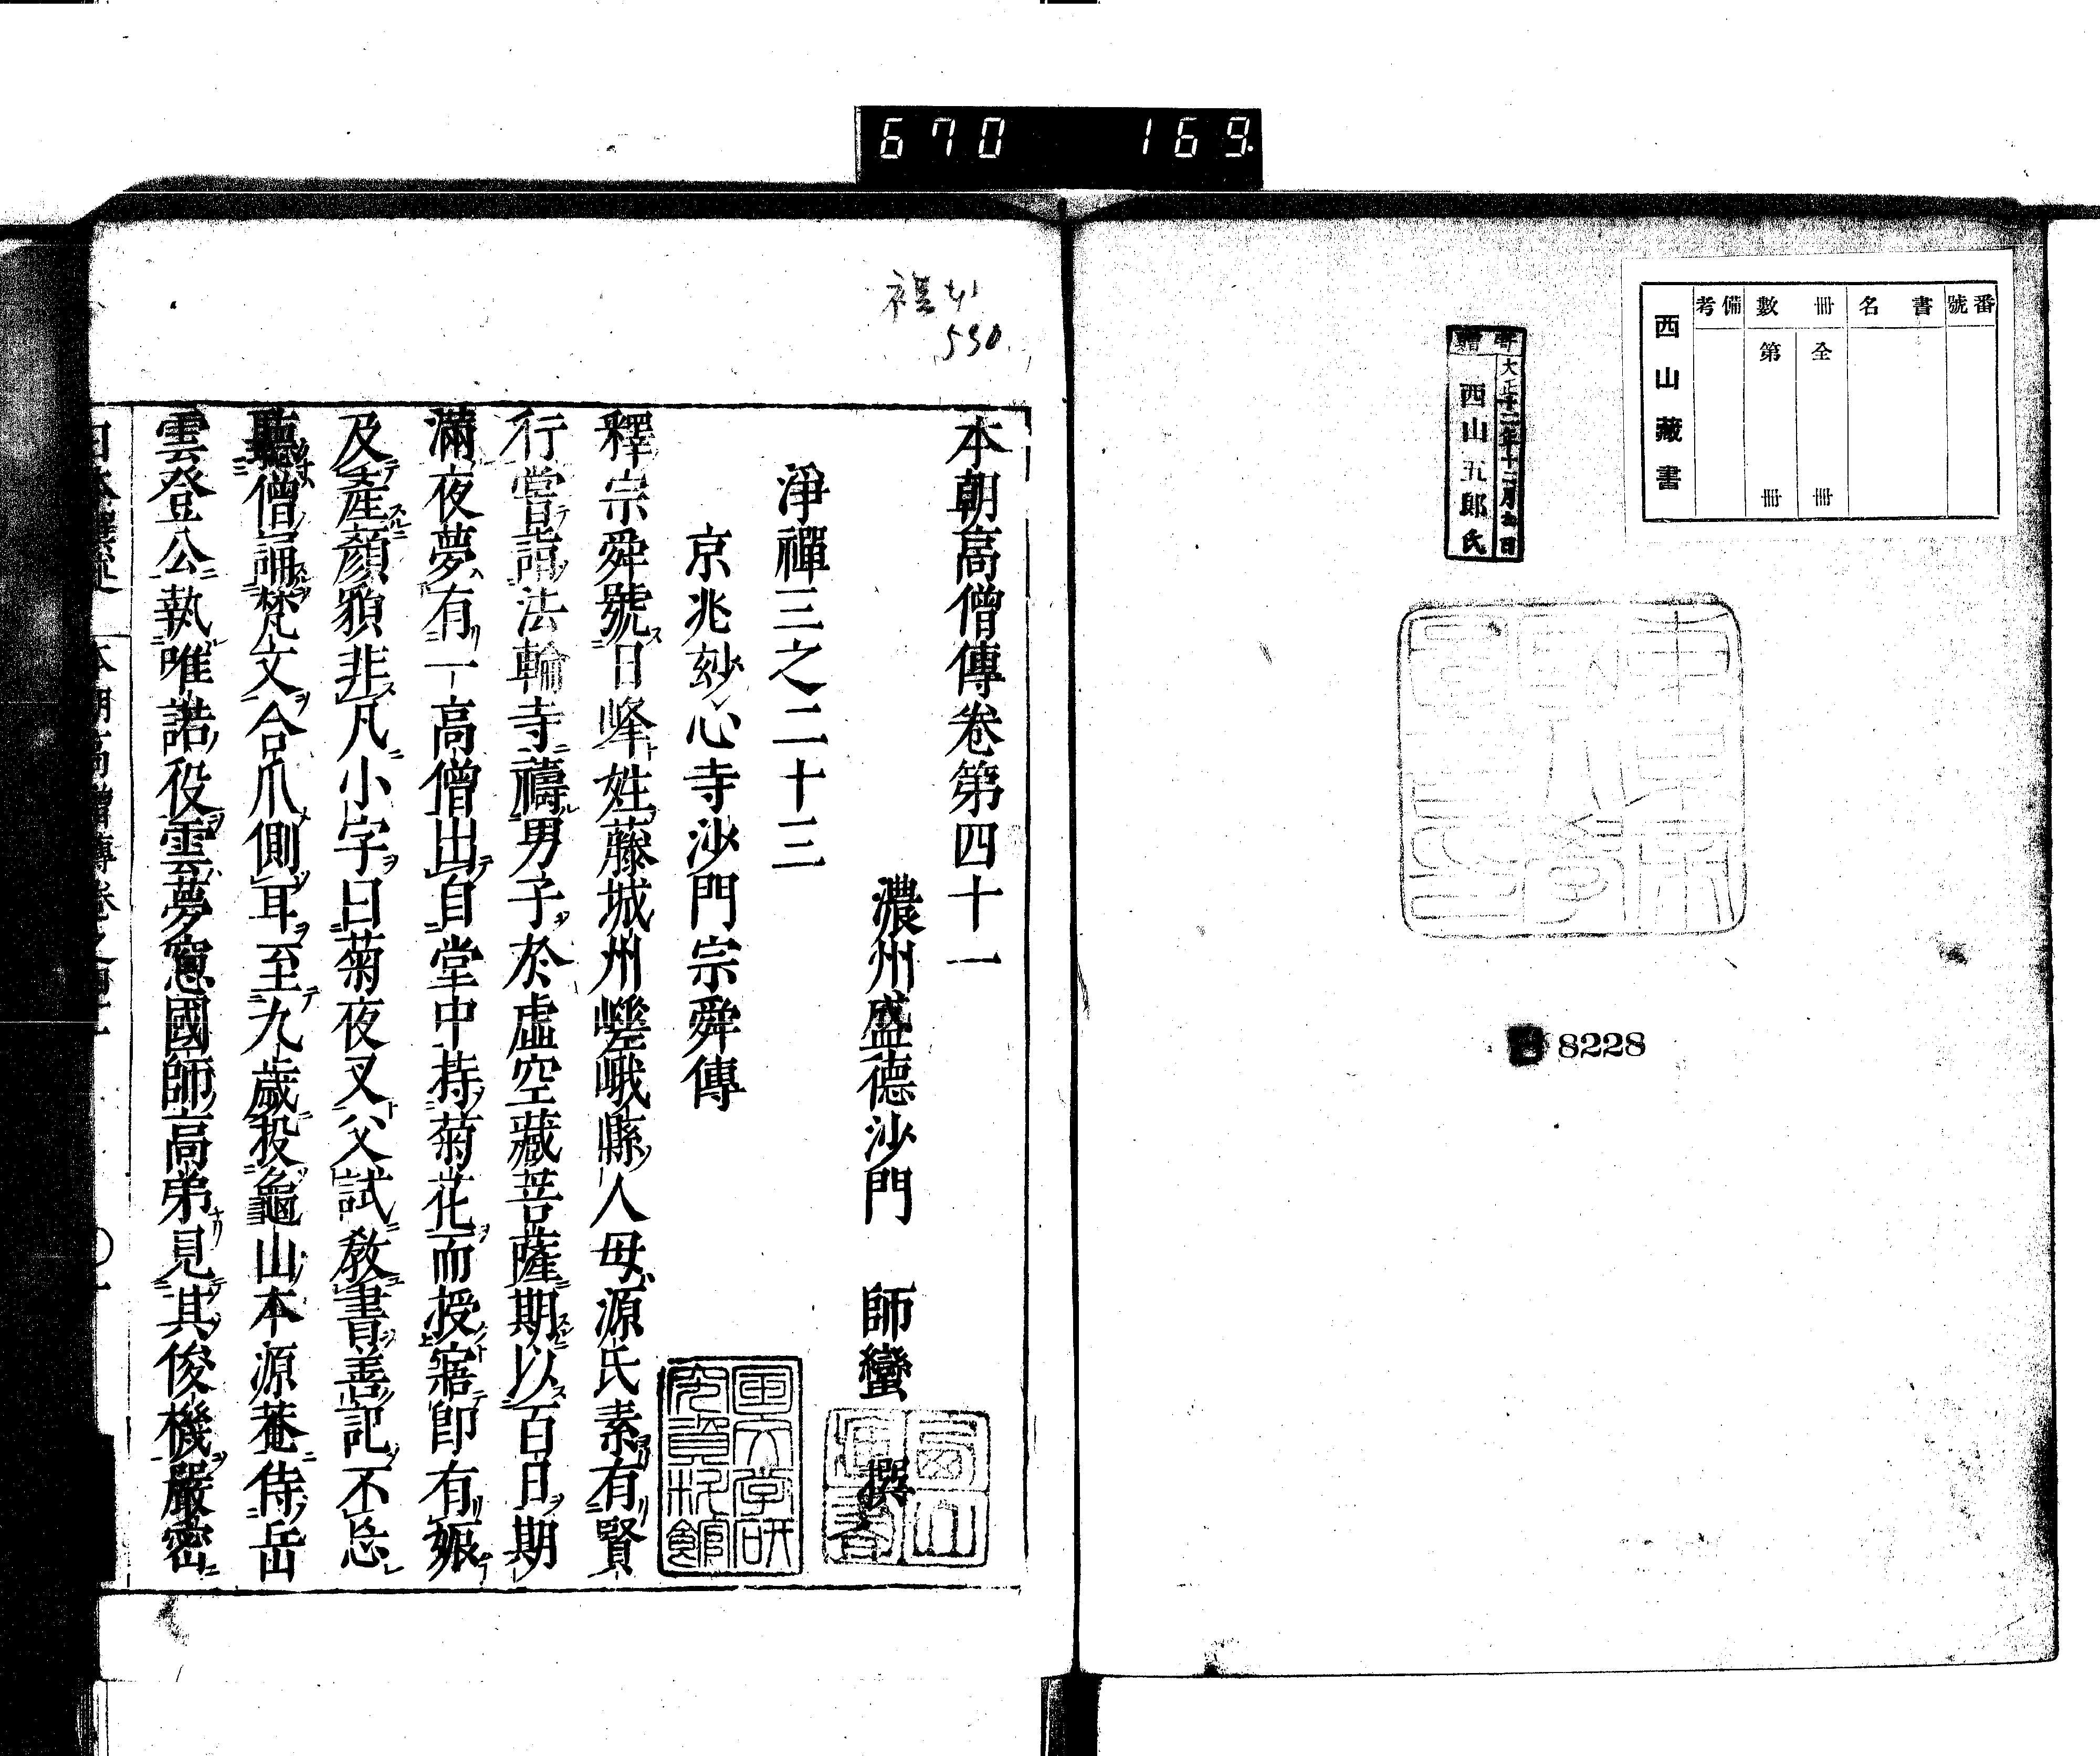 670 169
番號
書名
冊數
備考
全 冊
第 冊
西山藏書
寄贈
大正十二年十二月 日
西山五郎氏
8228
530
本朝高僧傳卷第四十一
濃州盛德沙門 師蠻 撰
淨禪三之二十三
京兆玅心寺沙門宗舜傳
釋宗舜號日峰姓藤城州嵯峨縣人母源氏素有賢
行嘗詣法輪寺禱男子於虛空藏菩薩期以百日期
滿夜夢有一高僧出自堂中持菊花而授寤即有娠
及產顏貌非凡小字曰菊夜叉父試教書善記不忘
聽僧誦梵文合爪側耳至九歲投龜山本源菴侍岳
雲登公執唯諾役雲夢窻國師高弟見其俊機嚴密